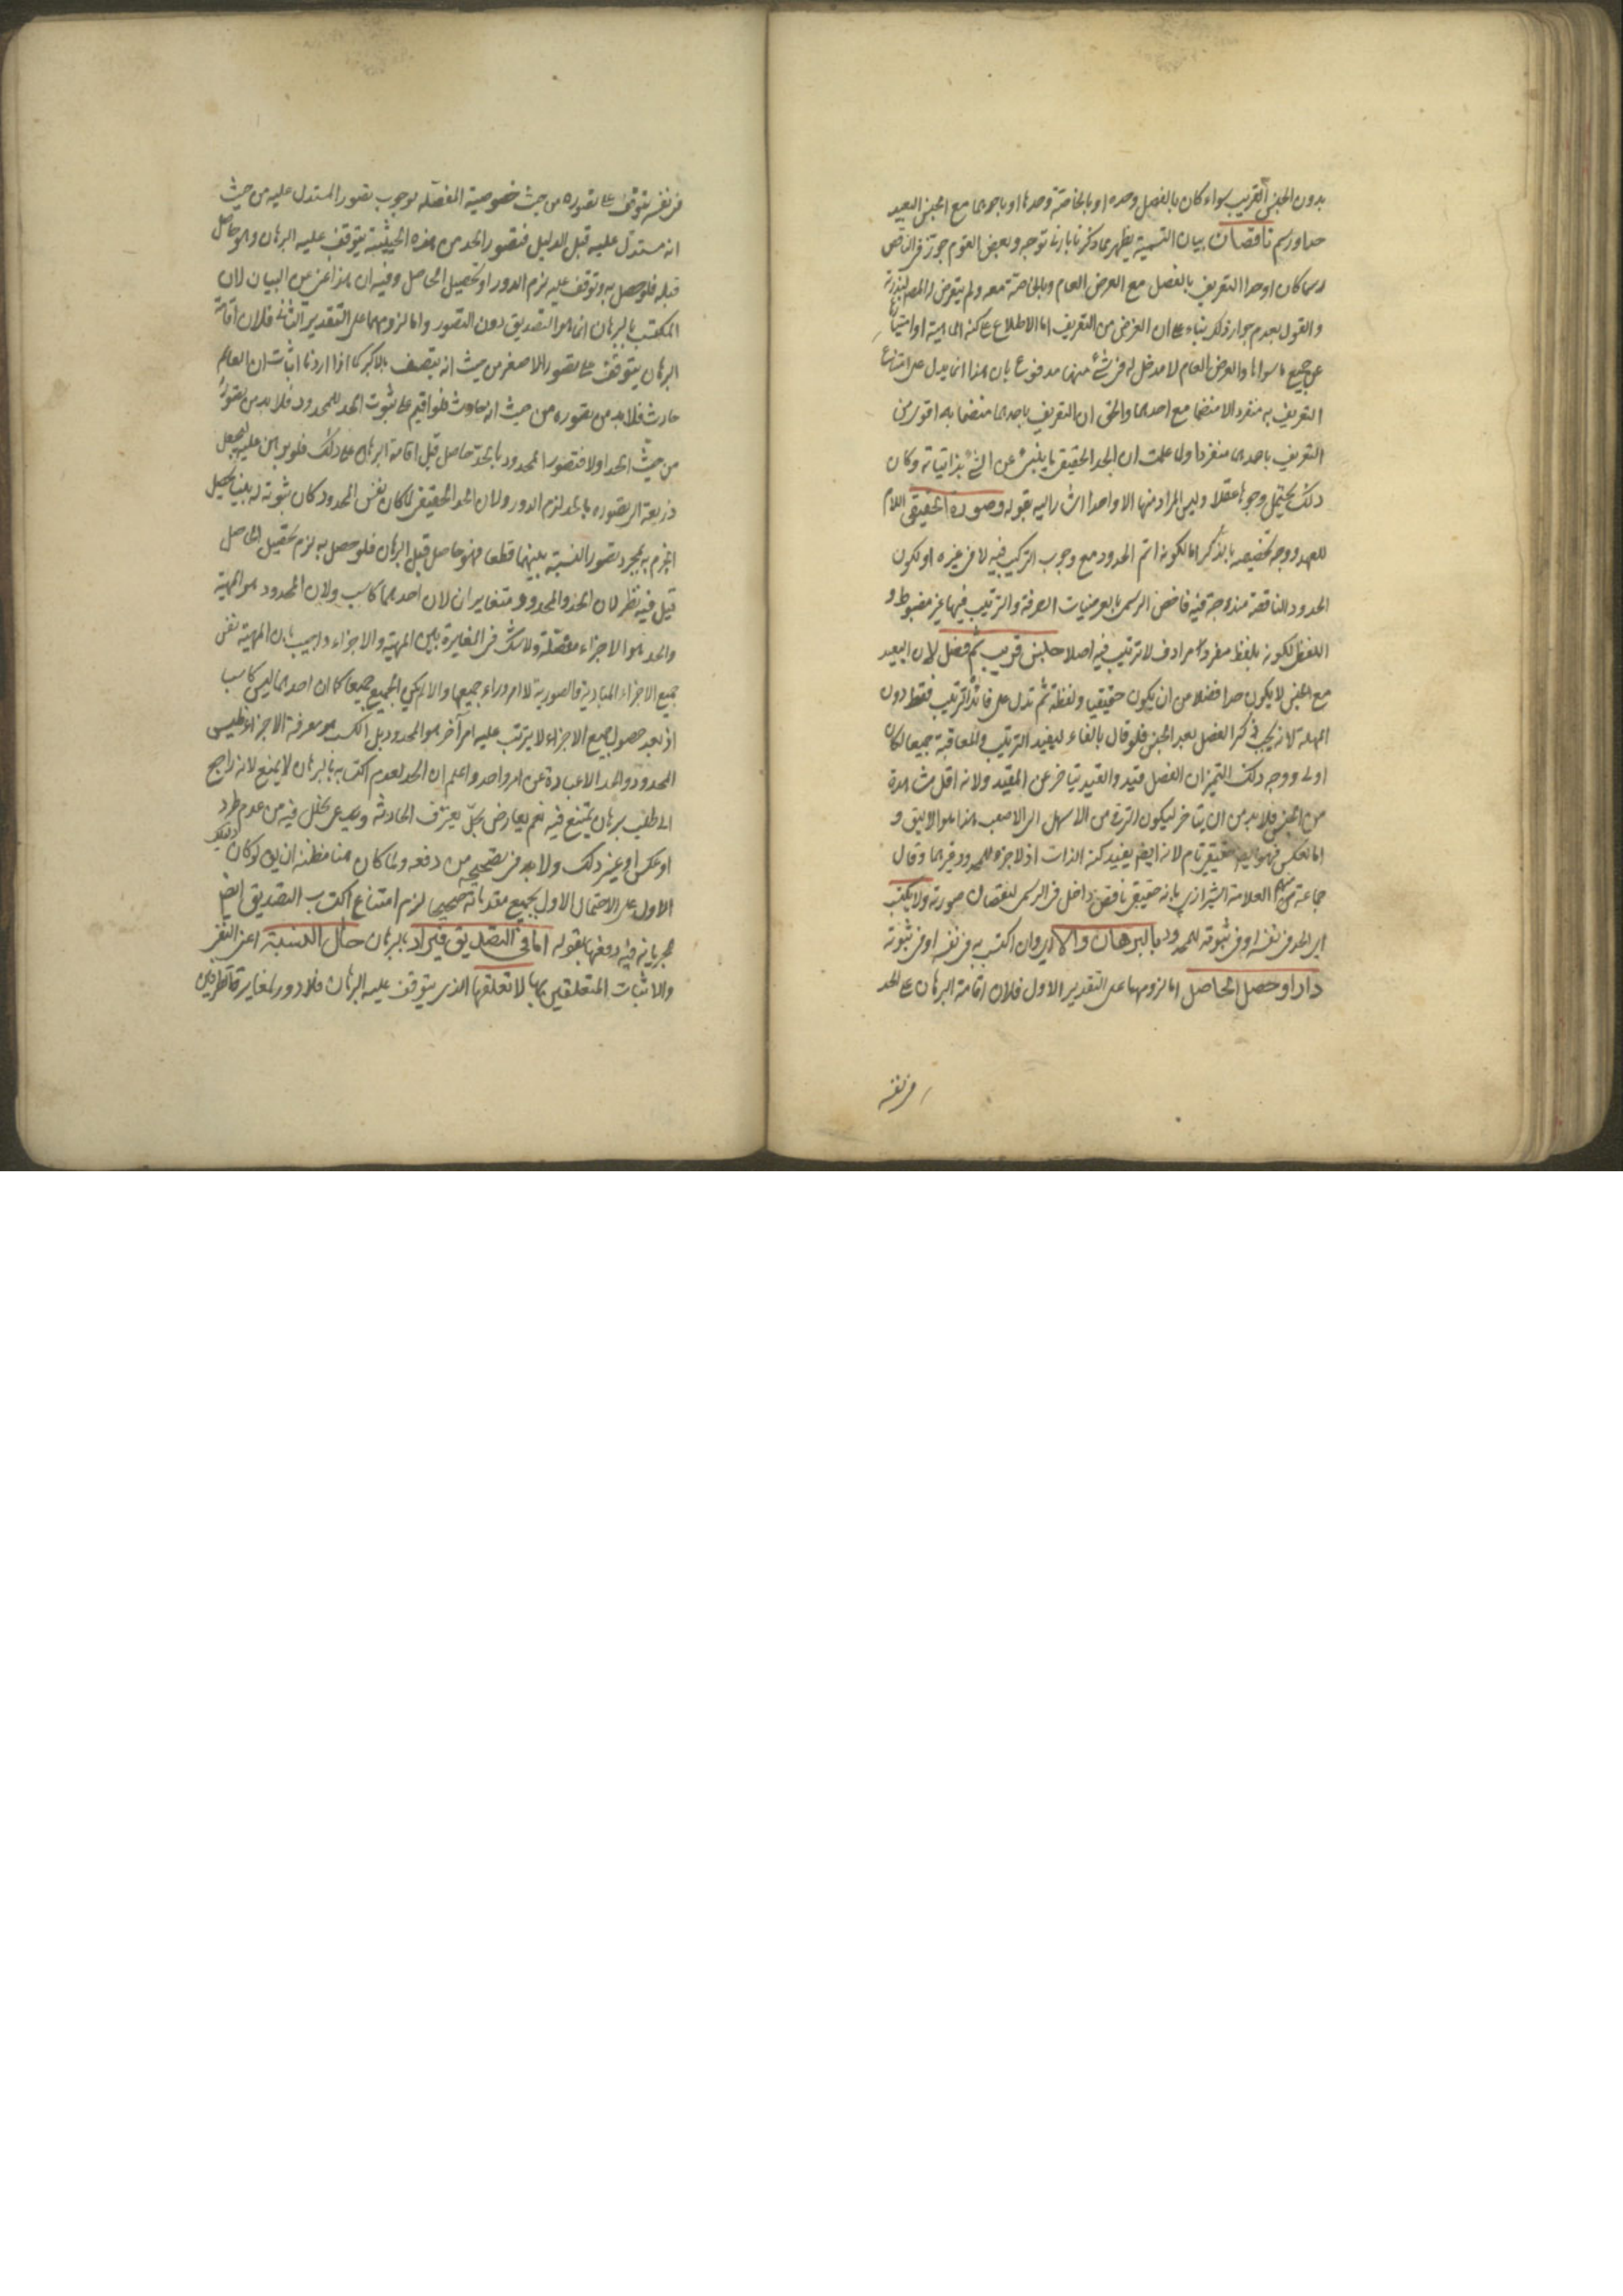 بدون الجنس القريب سواء كان بالفصل وحده او بالخاصة وحدها او باحدهما مع الجنس البعيد
حد او رسم ناقصان بيان التسمية يظهر مما ذكرنا بادنى توجه وبعض القوم جوز فى الناقص
رسما كان او حدا التعريف بالفصل مع العرض العام وبالخاصة معه ولم يتعرض له المص لندرته
والقول بعدم جواز ذلك بناء على ان الغرض من التعريف اما الاطلاع على كنه الماهية او امتيازها
عن جميع ما سواها والعرض العام لا مدخل له فى شئ منهما مدفوع بان هذا انما يدل على امتناع
التعريف به منفردا لا منضما مع احدهما والحق ان التعريف باحدهما منضما به اقوى من
التعريف باحدهما منفردا ولما علمت ان الحد الحقيقى ما ينبئ عن الشئ بذاتياته وكان
ذلك يحتمل وجوها عقلا وليس المراد منها الا واحدا اشار اليه بقوله وصورة الحقيقى اللام
للعهد ووجه تخصيصه بالذكر اما لكونه اتم الحدود مع وجوب التركيب فيه لا فى غيره او لكون
الحدود الناقصة مندرجة فيه فاحض الرسمى بالعرضيات الصرفة والترتيب فيها غير مضبوط و
اللفظى لكونه بلفظ مفرد مرادف لا ترتيب فيه اصلا جنس قريب ثم فصل لان البعيد
مع الجنس لا يكون حدا فضلا من ان يكون حقيقيا ولفظة ثم تدل على فائدة الترتيب فقط دون
المهلة لانه يجب ذكر الفصل بعد الجنس فلو قال بالفاء ليفيد الترتيب والمعاقبة جميعا لكان
اولى ووجه ذلك التميز ان الفصل قيد والقيد يتاخر عن المقيد ولانه اقل مشاهدة
من الجنس فلا بد من ان يتاخر ليكون الترقى من الاسهل الى الاصعب هذا هو الاليق و
اما العكس فهو ايضا حقيقى تام لانه ايضا يفيد كنه الذات اذ لا جزء للمحدود غيرهما وقال
جماعة منهم العلامة الشيرازى بانه حقيقى ناقص داخل فى الرسمى لنقصان صورته ولا يكتسب
اى الحد فى نفسه او فى ثبوته للمحدود بالبرهان والا اى وان اكتسب به فى نفسه او فى ثبوته
دار او حصل الحاصل اما لزومهما على التقدير الاول فلان اقامة البرهان على الحد
فى نفسه
فى نفسه يتوقف على تصوره من حيث خصوصية المفصلة لوجوب تصور المستدل عليه من حيث
انه مستدل عليه قبل الدليل فتصور الحد من هذه الحيثية يتوقف عليه البرهان وهو حاصل
قبله فلو حصل به وتوقف عليه لزم الدور او تحصيل الحاصل وفيه ان هذا غنى عن البيان لان
المكتسب بالبرهان انما هو التصديق دون التصور واما لزومهما على التقدير الثانى فلان اقامة
البرهان يتوقف على تصور الاصغر من حيث انه يتصف بالاكبر كما اذا اردنا اثبات ان العالم
حادث فلا بد من تصوره من حيث انه حادث فلو اقيم على ثبوت الحد للمحدود فلا بد من تصوره
من حيث الحد اولا فتصور المحدود بالحد حاصل قبل اقامة البرهان على ذلك فلو برهن عليه ليجعل
ذريعة الى تصوره بالحد لزم الدور ولان الحد الحقيقى لما كان نفس المحدود كان ثبوته له بينا يحصل
الجزم به بمجرد تصور النسبة بينهما قطعا فهو حاصل قبل البرهان فلو حصل به لزم تحصيل الحاصل
قيل فيه نظر لان الحد والمحدود متغايران لان احدهما كاسب ولان المحدود هو المهية
والحد هو الاجزاء مفصلة ولا شك فى المغايرة بين المهية والاجزاء واجيب بان المهية نفس
جميع الاجزاء المادية والصورية لا امر وراء جميعها والا لم يكن الجميع جميعا كما ان احدهما ليس كاسبا
اذ بعد حصول جميع الاجزاء لا يترتب عليه امر آخر هو المحدود بل الكسب هو معرفة الاجزاء فليس
المحدود والحد الا عبارة عن امر واحد واعلم ان الحد لعدم اكتسابه بالبرهان لا يمنع لانه راجع
الى طلب برهان يمتنع فيه نعم يعارض بحد يعترف الحاد به ويدعى بخلل فيه من عدم طرد
او عكس او غير ذلك ولا بد فى تصحيحه من دفعه ولما كان هنا مظنة ان يق لو كان دليلكم
الاول على الاحتمال الاول بجميع مقدماته صحيحا لزم امتناع اكتساب التصديق ايضا
لجريانه فيه دفعها بقوله اما فى التصديق فيراد بالبرهان حال النسبة اعنى النفى
والاثبات المتعلقين بها لا تعلقها الذى يتوقف عليه البرهان فلا دور لمغايرة الطرفين